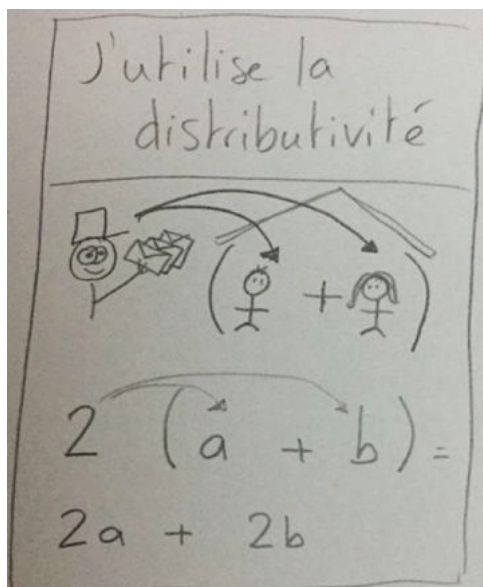 J'utilise la
distributivité
( + )
2 (a + b) =
2a + 2b